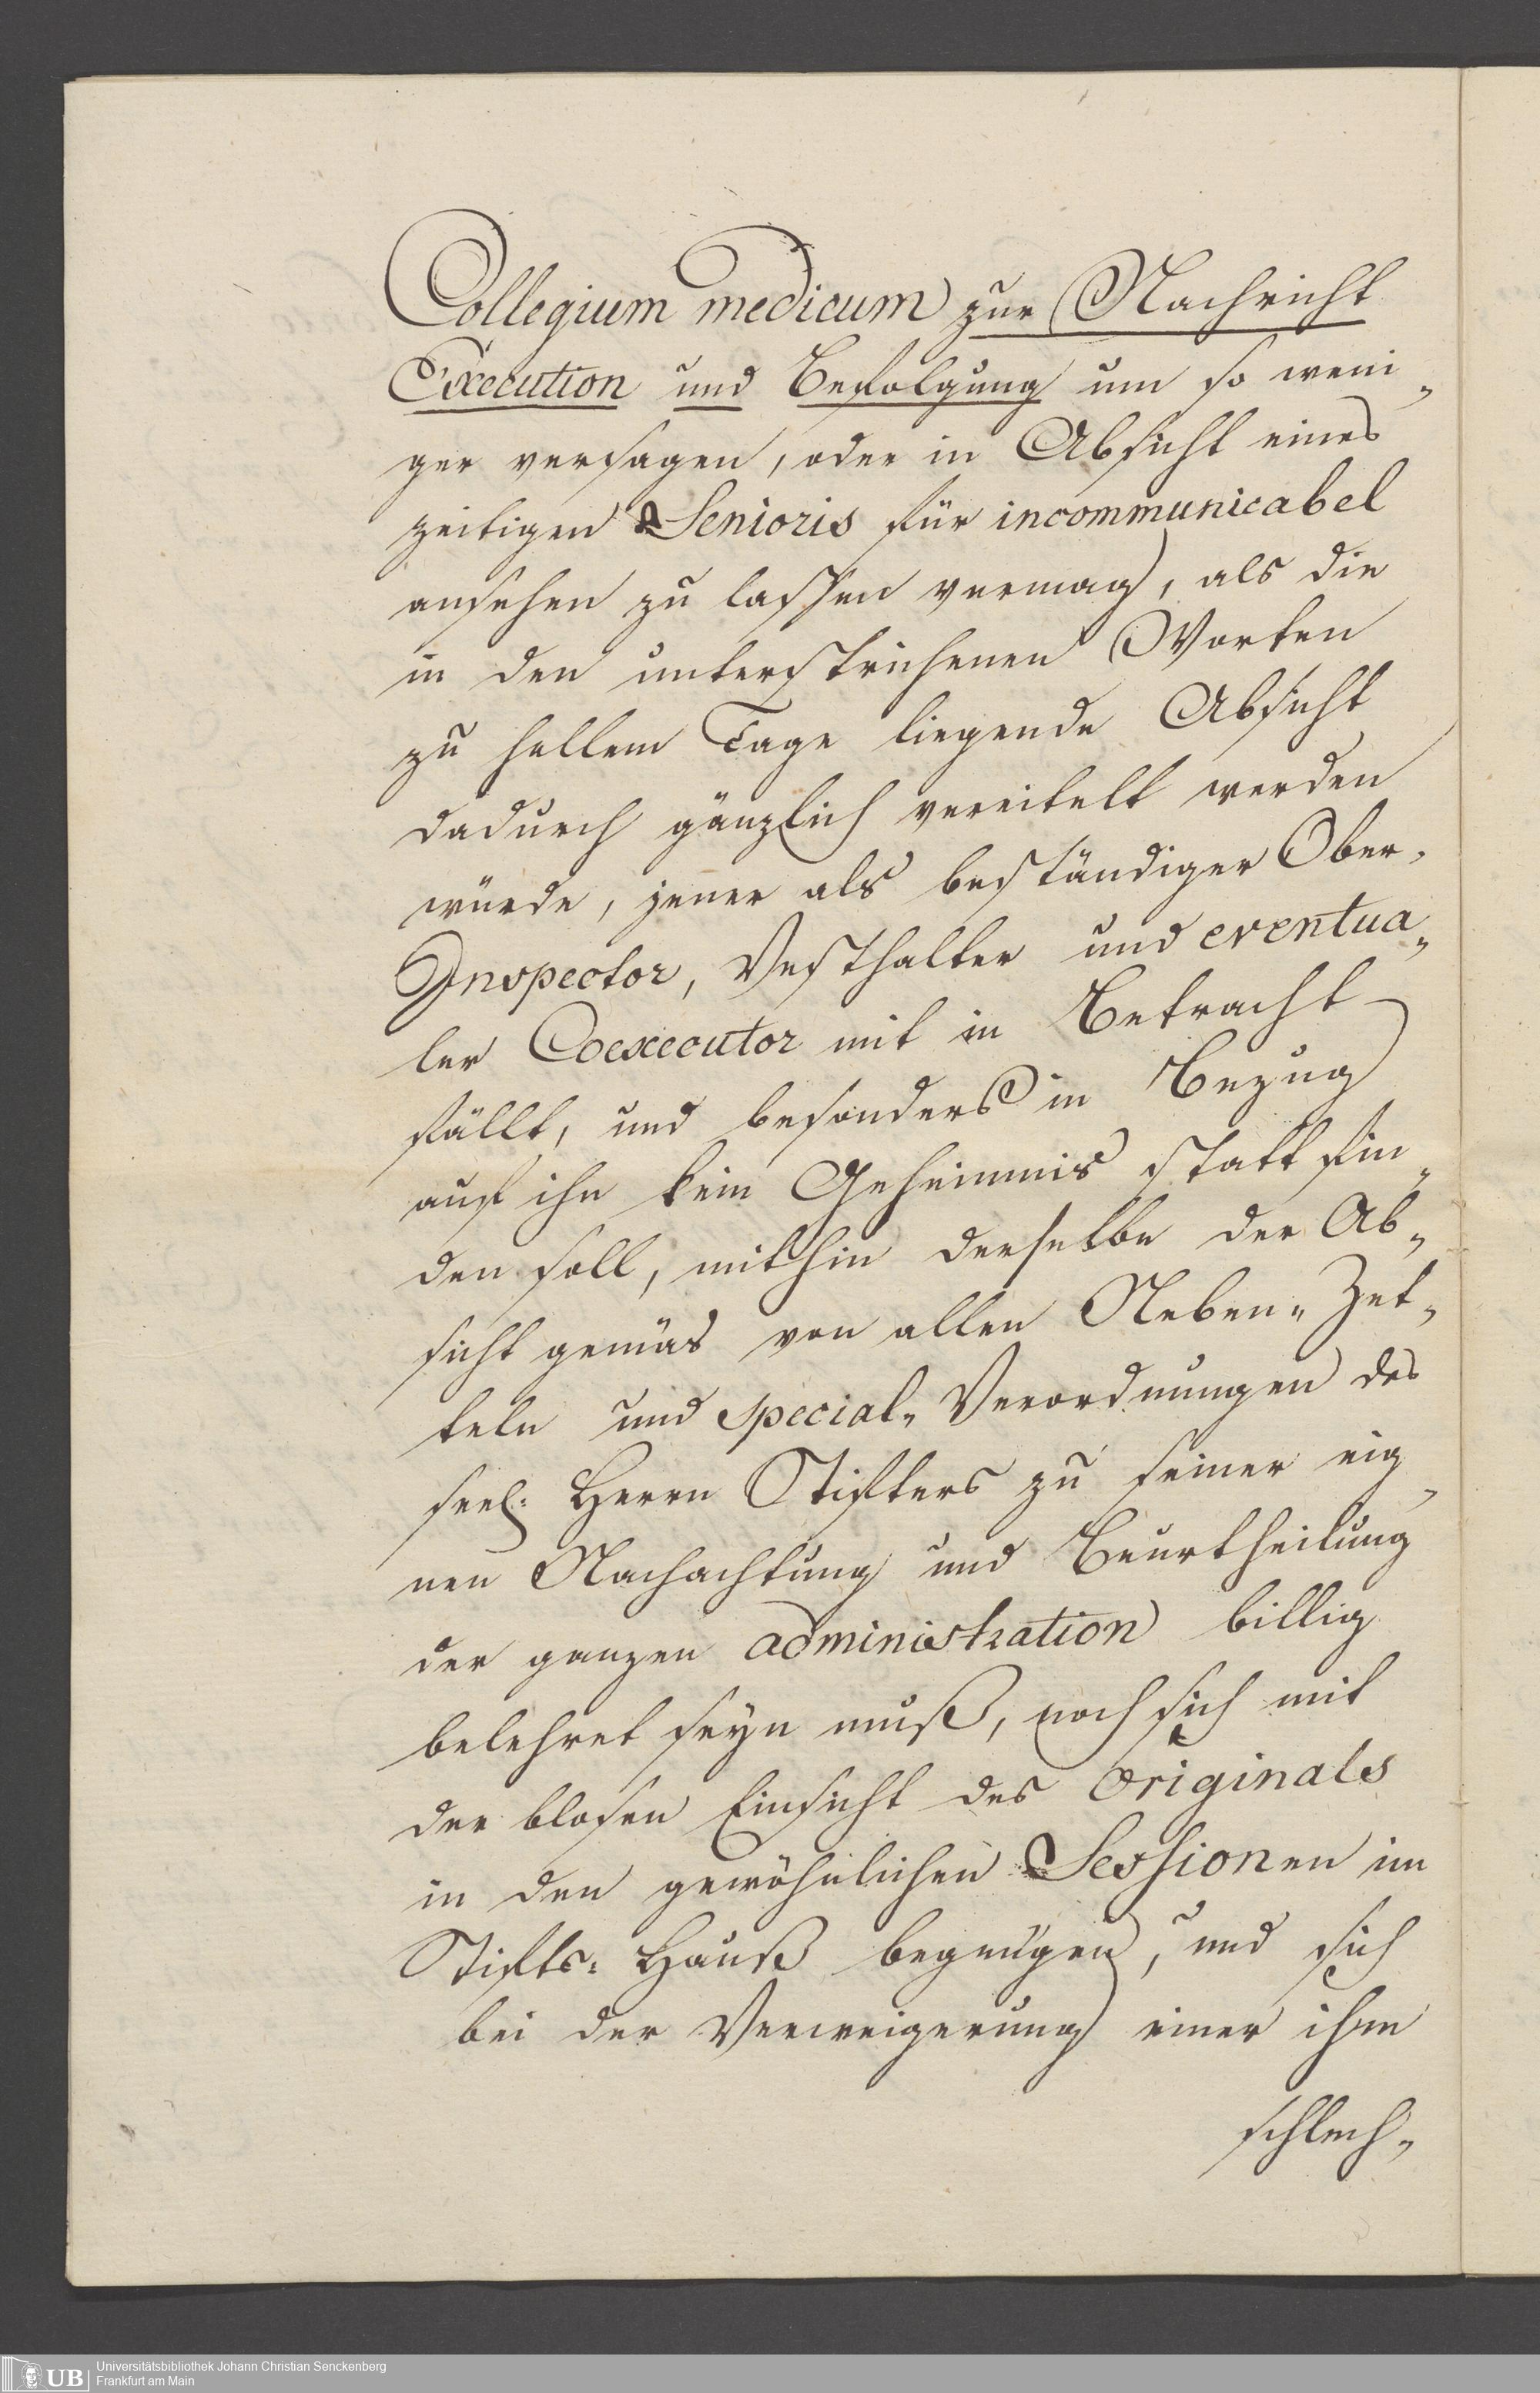 Collegium medicum zur Nachricht
Execution und Befolgung um so weni„
ger versagen, oder in Absicht eines
zeitigen Senioris für incommunicabel
ansehen zu lassen vermag, als die
in den unterstrichenen Worten
zu hellem Tage liegende Absicht
dadurch gänzlich vereitelt werden
würde, jener als beständiger Ober-
Inspector, Vesthalter und eventua„
ler Coexecutor mit in Betracht
fällt, und besonders in Bezug
auf ihn kein Geheimnis statt fin„
den soll, mithin derselbe der Ab„
sicht gemäs von allen Neben„ Zet„
teln und special„ Verordnungen des
seel: Herrn Stifters zu seiner eig„
nen Nachachtung und Beurtheilung
der ganzen administration billig
belehret seyn muß, noch sich mit
der blosen Einsicht des Originals
in den gewöhnlichen Sessionen im
Stifts: Hauß begnügen, und sich
bei der Verweigerung einer ihm
schlech„
UB
Universitätsbibliothek Johann Christian Senckenberg
Frankfurt am Main